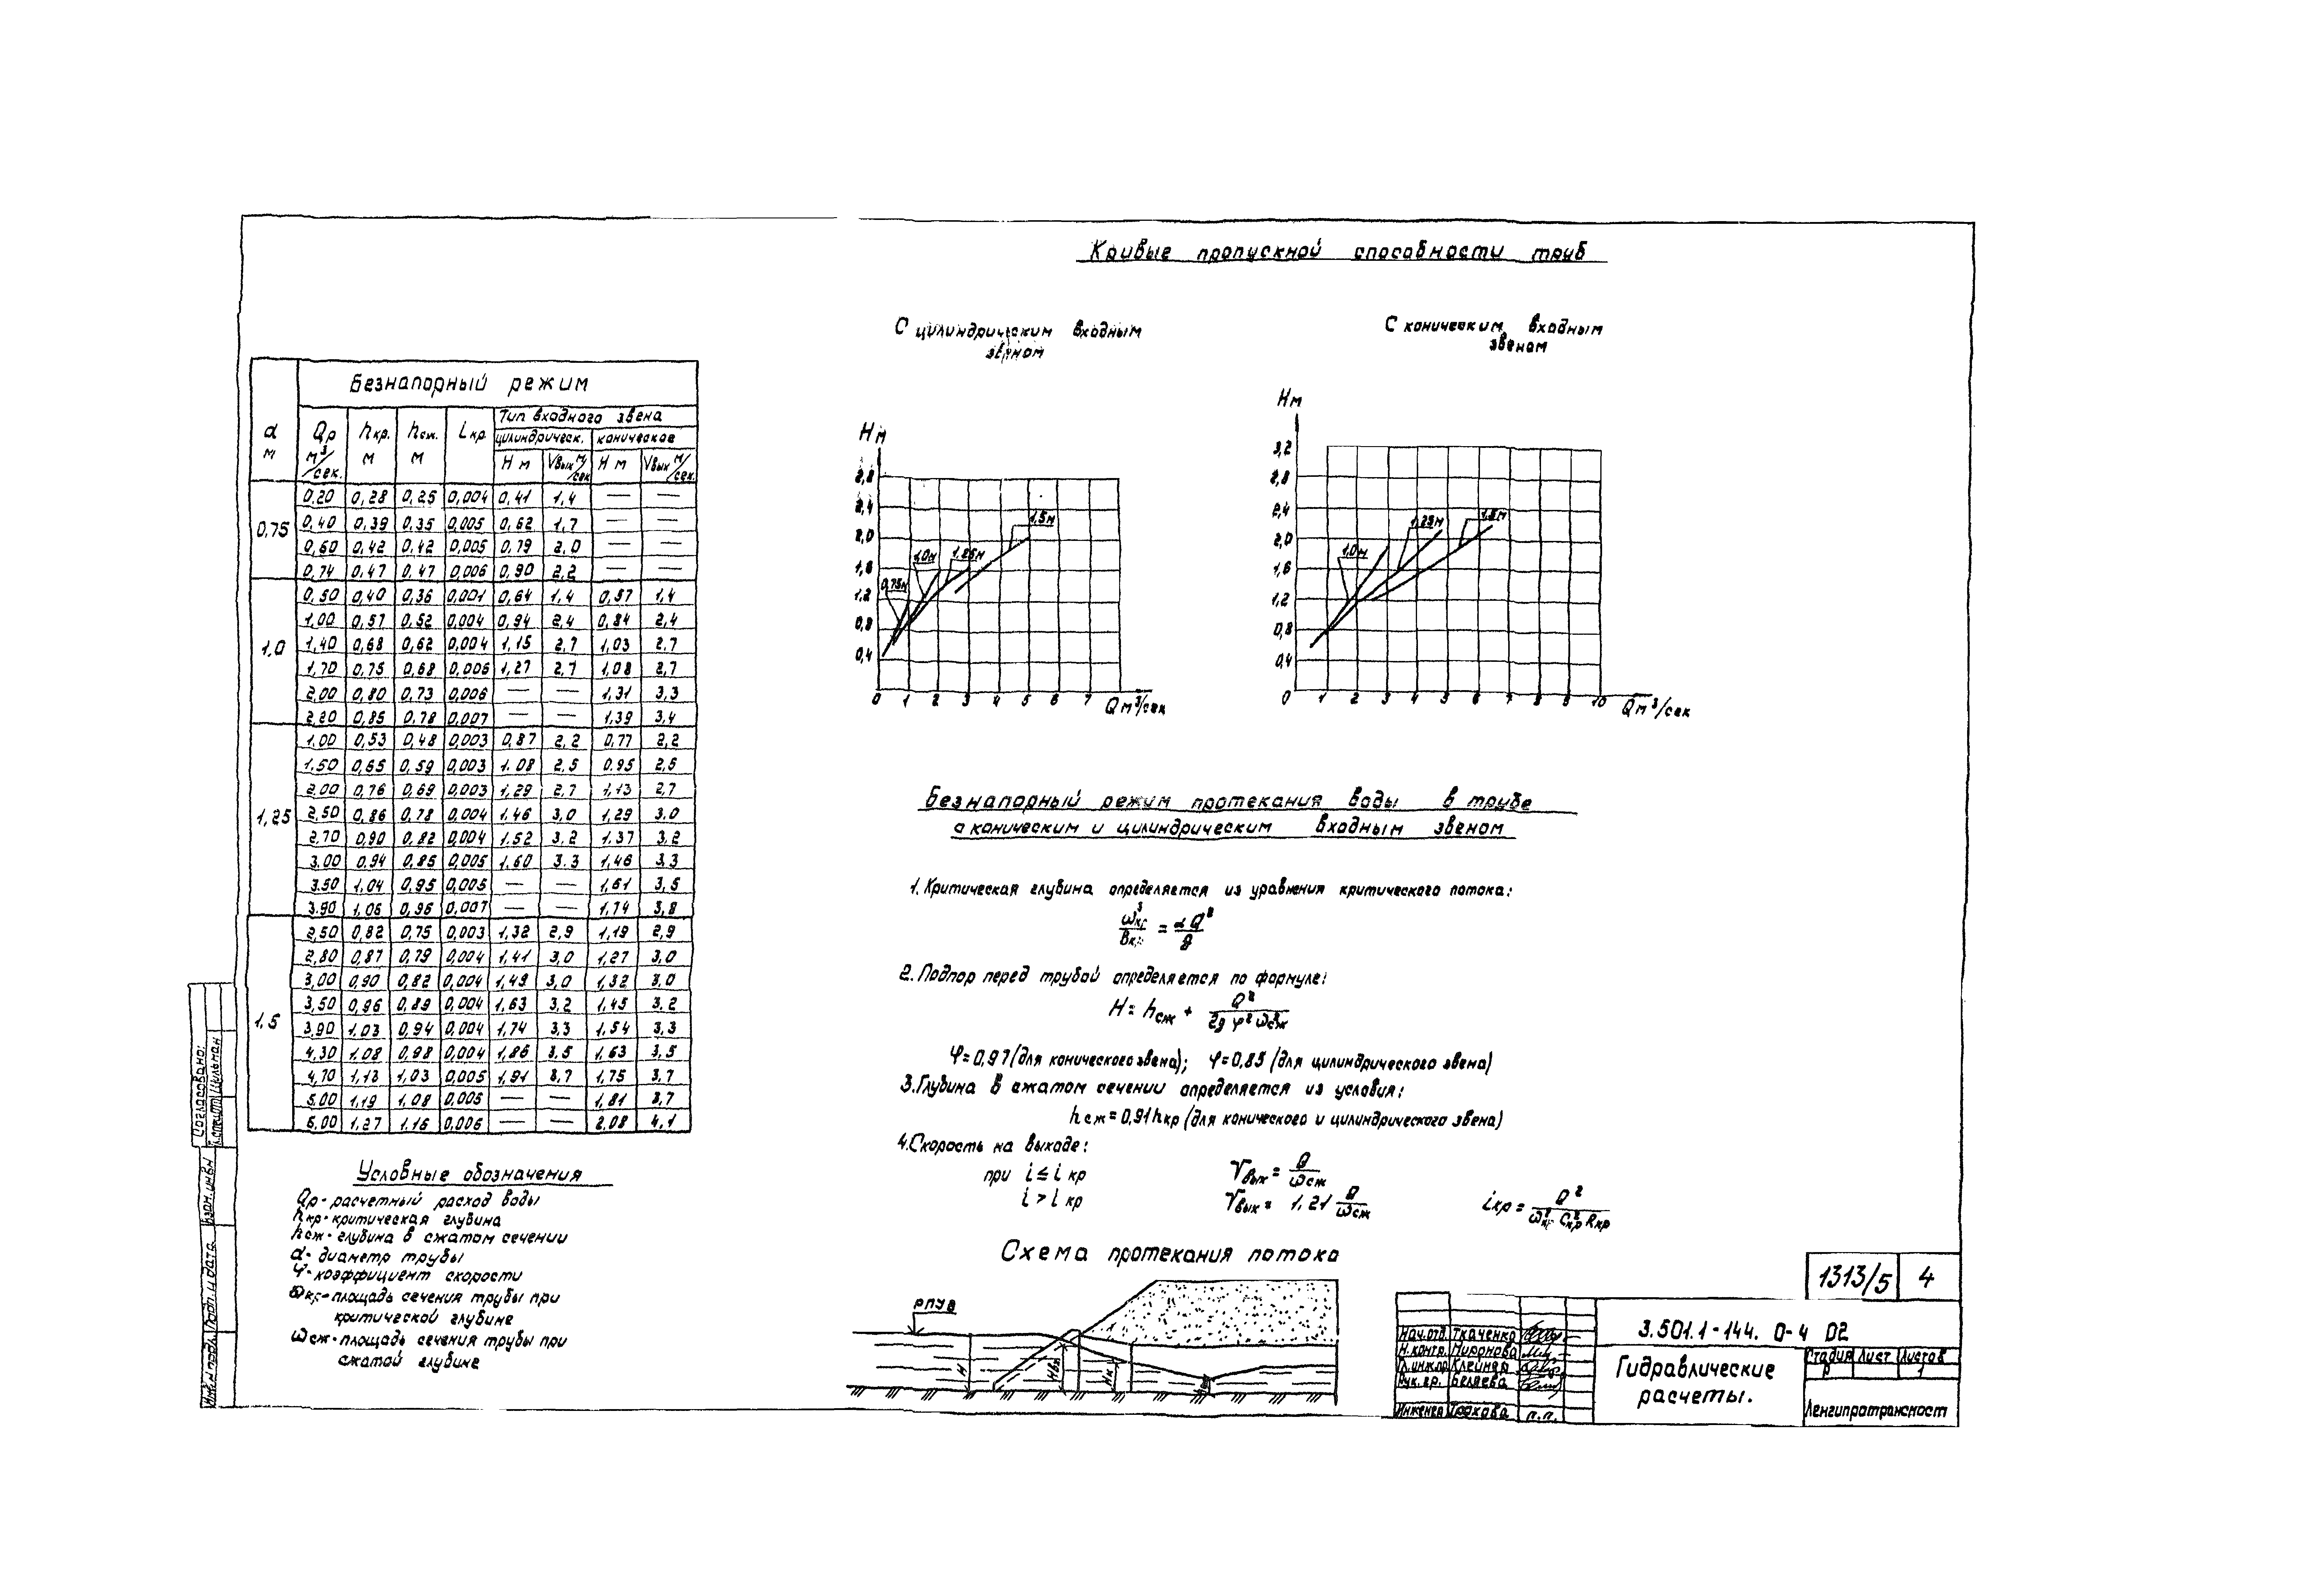 Кривые пропускной способности труб
С цилиндрическим входным
звеном
С коническим входным
звеном
Безнапорный режим
d м | Qр м³/сек. | hкр. м | hсж. м | iкр | Тип входного звена
цилиндрическ. | коническое
H м | Vвых м/сек | H м | Vвых м/сек.
0,75
0,20 0,28 0,25 0,004 0,41 1,4 — —
0,40 0,39 0,35 0,005 0,62 1,7 — —
0,60 0,42 0,42 0,005 0,79 2,0 — —
0,74 0,47 0,47 0,006 0,90 2,2 — —
1,0
0,50 0,40 0,36 0,001 0,64 1,4 0,57 1,4
1,00 0,57 0,52 0,004 0,94 2,4 0,84 2,4
1,40 0,68 0,62 0,004 1,15 2,7 1,03 2,7
1,70 0,75 0,68 0,006 1,27 2,7 1,08 2,7
2,00 0,80 0,73 0,006 — — 1,31 3,3
2,20 0,85 0,78 0,007 — — 1,39 3,4
1,25
1,00 0,53 0,48 0,003 0,87 2,2 0,77 2,2
1,50 0,65 0,59 0,003 1.08 2,5 0.95 2,5
2,00 0,76 0,69 0,003 1,29 2,7 1,13 2,7
2,50 0,86 0,78 0,004 1,46 3,0 1,29 3,0
2,70 0,90 0,82 0,004 1,52 3,2 1,37 3,2
3,00 0,94 0,85 0,005 1,60 3,3 1,46 3,3
3,50 1,04 0,95 0,005 — — 1,61 3,5
3,90 1,06 0,96 0,007 — — 1,74 3,8
1,5
2,50 0,82 0,75 0,003 1,32 2,9 1,19 2,9
2,80 0,87 0,79 0,004 1,41 3,0 1,27 3,0
3,00 0,90 0,82 0,004 1,49 3,0 1,32 3,0
3,50 0,96 0,89 0,004 1,63 3,2 1,45 3,2
3,90 1,03 0,94 0,004 1,74 3,3 1,54 3,3
4,30 1,08 0,98 0,004 1,86 3,5 1,63 3,5
4,70 1,13 1,03 0,005 1,91 3,7 1,75 3,7
5,00 1,19 1,08 0,005 — — 1,81 3,7
6,00 1,27 1,16 0,006 — — 2,08 4,1
Условные обозначения
Qр - расчетный расход воды
hкр - критическая глубина
hсж - глубина в сжатом сечении
d - диаметр трубы
φ - коэффициент скорости
ωкр - площадь сечения трубы при
критической глубине
ωсж - площадь сечения трубы при
сжатой глубине
H м
2,8
2,4
2,0
1,6
1,2
0,8
0,4
0 1 2 3 4 5 6 7 Q м³/сек
0,75м
1,0м
1,25м
1,5м
H м
3,2
2,8
2,4
2,0
1,6
1,2
0,8
0,4
0 1 2 3 4 5 6 7 8 9 10 Q м³/сек
1,0м
1,25м
1,5м
Безнапорный режим протекания воды в трубе
с коническим и цилиндрическим входным звеном
1. Критическая глубина определяется из уравнения критического потока:
ω³кр/Вкр = αQ²/g
2. Подпор перед трубой определяется по формуле:
H = hсж + Q²/2g φ² ω²сж
φ=0,97 (для конического звена); φ=0,85 (для цилиндрического звена)
3. Глубина в сжатом сечении определяется из условия:
hсж = 0,91 hкр (для конического и цилиндрического звена)
4. Скорость на выходе:
при i ≤ i кр Vвых = Q/ωсж
i > i кр Vвых = 1,21 Q/ωсж iкр = Q²/ω²кр C²кр Rкр
Схема протекания потока
РПУВ
H
Hвх
Hк
hсж
1313/5 4
3.501.1-144. 0-4 02
Гидравлические
расчеты.
Стадия Лист Листов
Р 1
Ленгипротрансмост
Нач.отд. Ткаченко
Н.контр. Миронова
Гл.инж.пр. Клейнер
Рук. гр. Беляева
Инженер Трохова п.п.
Согласовано:
Взам. инв. №
Подп. и дата
Инв. № подл.